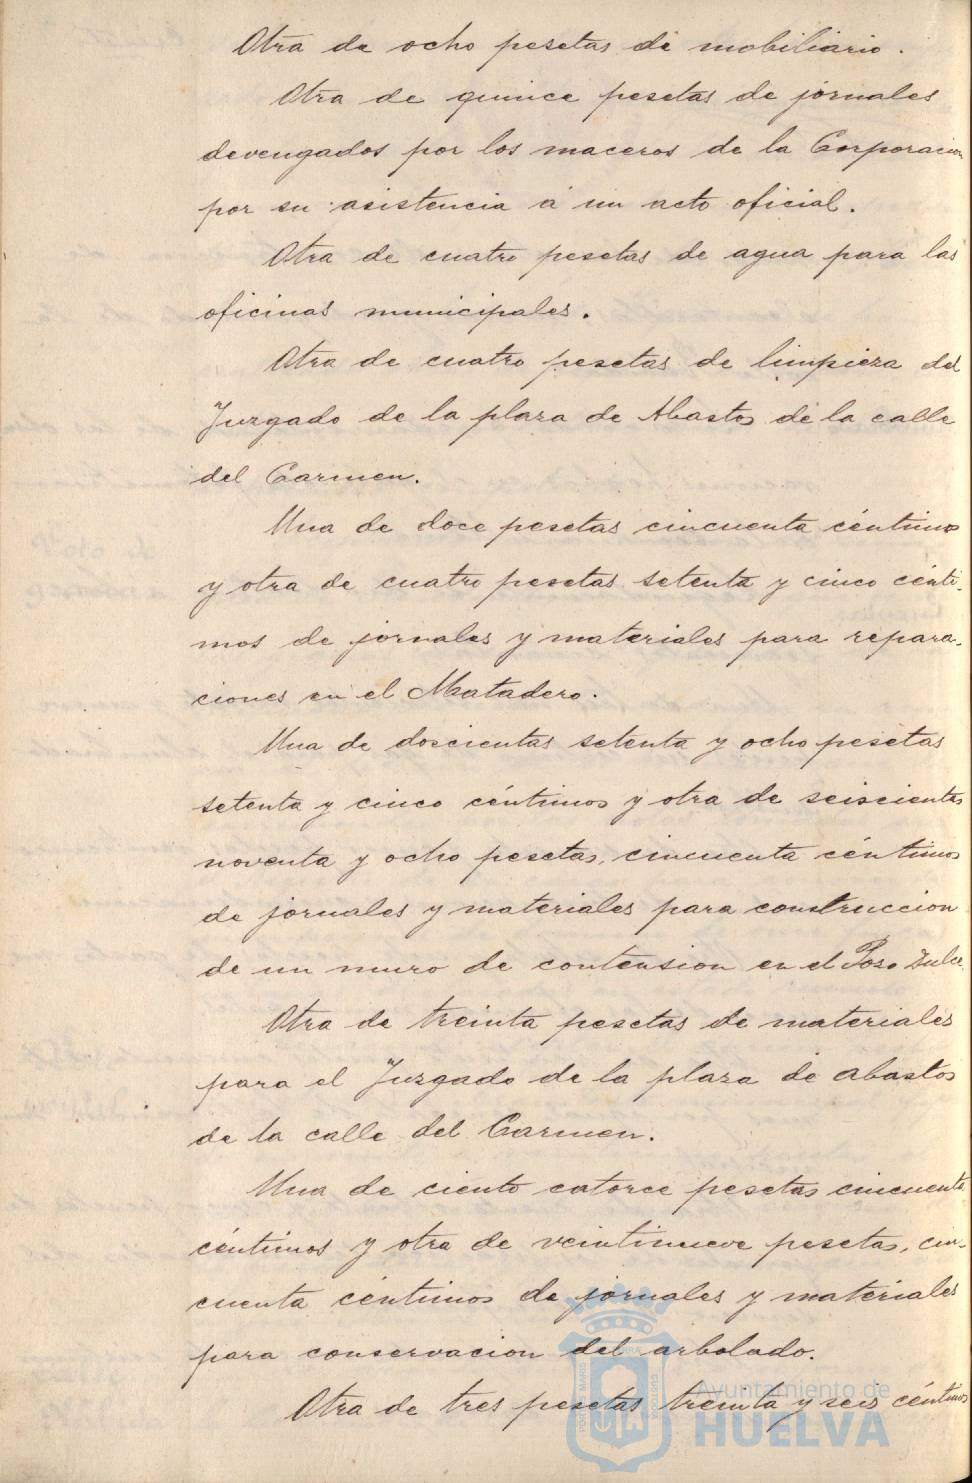 Otra de ocho pesetas de mobiliario.
Otra de quince pesetas de jornales
devengados por los maceros de la Corporacion
por su asistencia á un acto oficial.
Otra de cuatro pesetas de agua para las
oficinas municipales.
Otra de cuatro pesetas de limpieza del
Juzgado de la plaza de Abastos de la calle
del Carmen.
Una de doce pesetas cincuenta céntimos
y otra de cuatro pesetas setenta y cinco cénti-
mos de jornales y materiales para repara-
ciones en el Matadero.
Una de doscientas setenta y ocho pesetas
setenta y cinco céntimos y otra de seiscientas
noventa y ocho pesetas, cincuenta céntimos
de jornales y materiales para construccion
de un muro de contension en el Poso Dulce.
Otra de treinta pesetas de materiales
para el Juzgado de la plaza de abastos
de la calle del Carmen.
Una de ciento catorce pesetas cincuenta
céntimos y otra de veintinueve pesetas, cin-
cuenta céntimos de jornales y materiales
para conservacion del arbolado.
Otra de tres pesetas treinta y seis céntimos
Ayuntamiento de
HUELVA